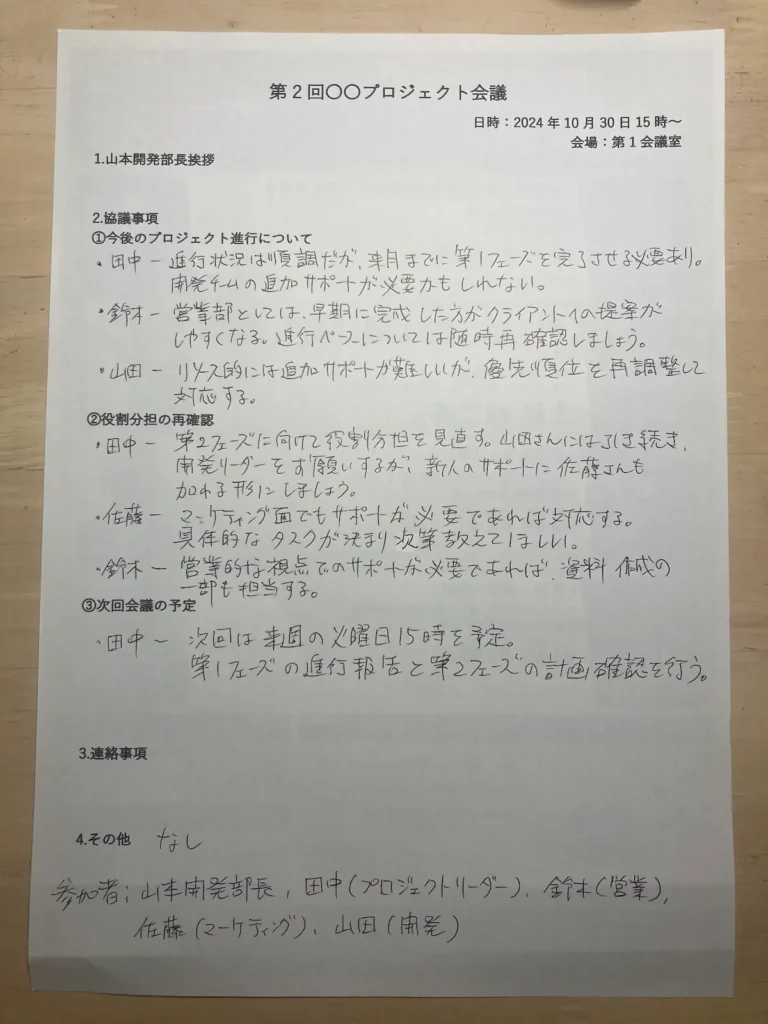 第2回〇〇プロジェクト会議
日時：2024年10月30日15時～
会場：第1会議室
1.山本開発部長挨拶
2.協議事項
①今後のプロジェクト進行について
・田中－進行状況は順調だが、来月までに第1フェーズを完了させる必要あり。
開発チームの追加サポートが必要かもしれない。
・鈴木－営業部としては、早期に完成した方がクライアントへの提案が
しやすくなる。進行ペースについては随時再確認しましょう。
・山田－リソース的には追加サポートが難しいが、優先順位を再調整して
対応する。
②役割分担の再確認
・田中－第2フェーズに向けて役割分担を見直す。山田さんには引き続き、
開発リーダーをお願いするが、新人のサポートに佐藤さんも
加わる形にしましょう。
・佐藤－マーケティング面でもサポートが必要であれば対応する。
具体的なタスクが決まり次第教えてほしい。
・鈴木－営業的な視点でのサポートが必要であれば、資料作成の
一部も担当する。
③次回会議の予定
・田中～次回は来週の火曜日15時を予定。
第1フェーズの進行報告と第2フェーズの計画確認を行う。
3.連絡事項
4.その他 なし
参加者：山本開発部長、田中(プロジェクトリーダー)、鈴木(営業)、
佐藤(マーケティング)、山田(開発)